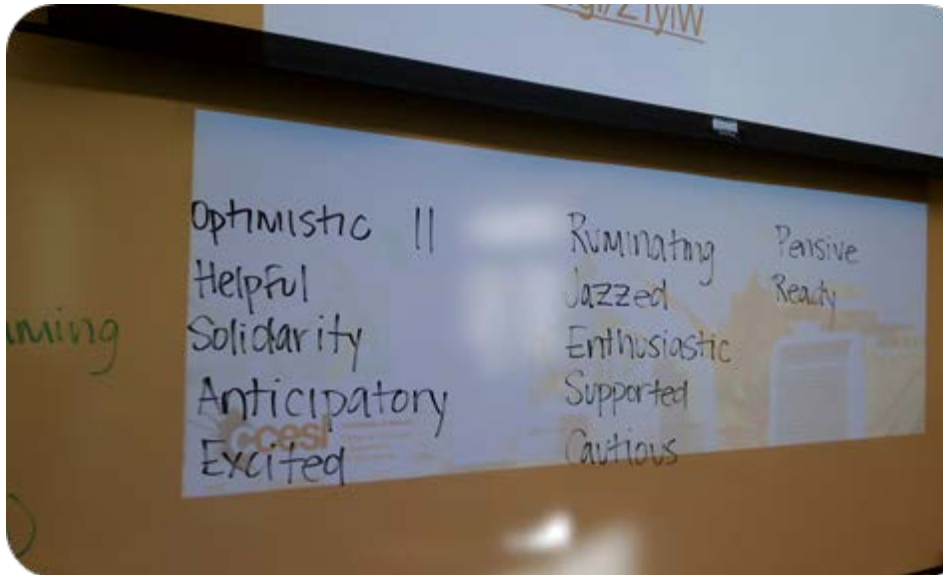 Optimistic ||
Helpful
Solidarity
Anticipatory
Excited
Ruminating
Jazzed
Enthusiastic
Supported
Cautious
Pensive
Ready
ccesl